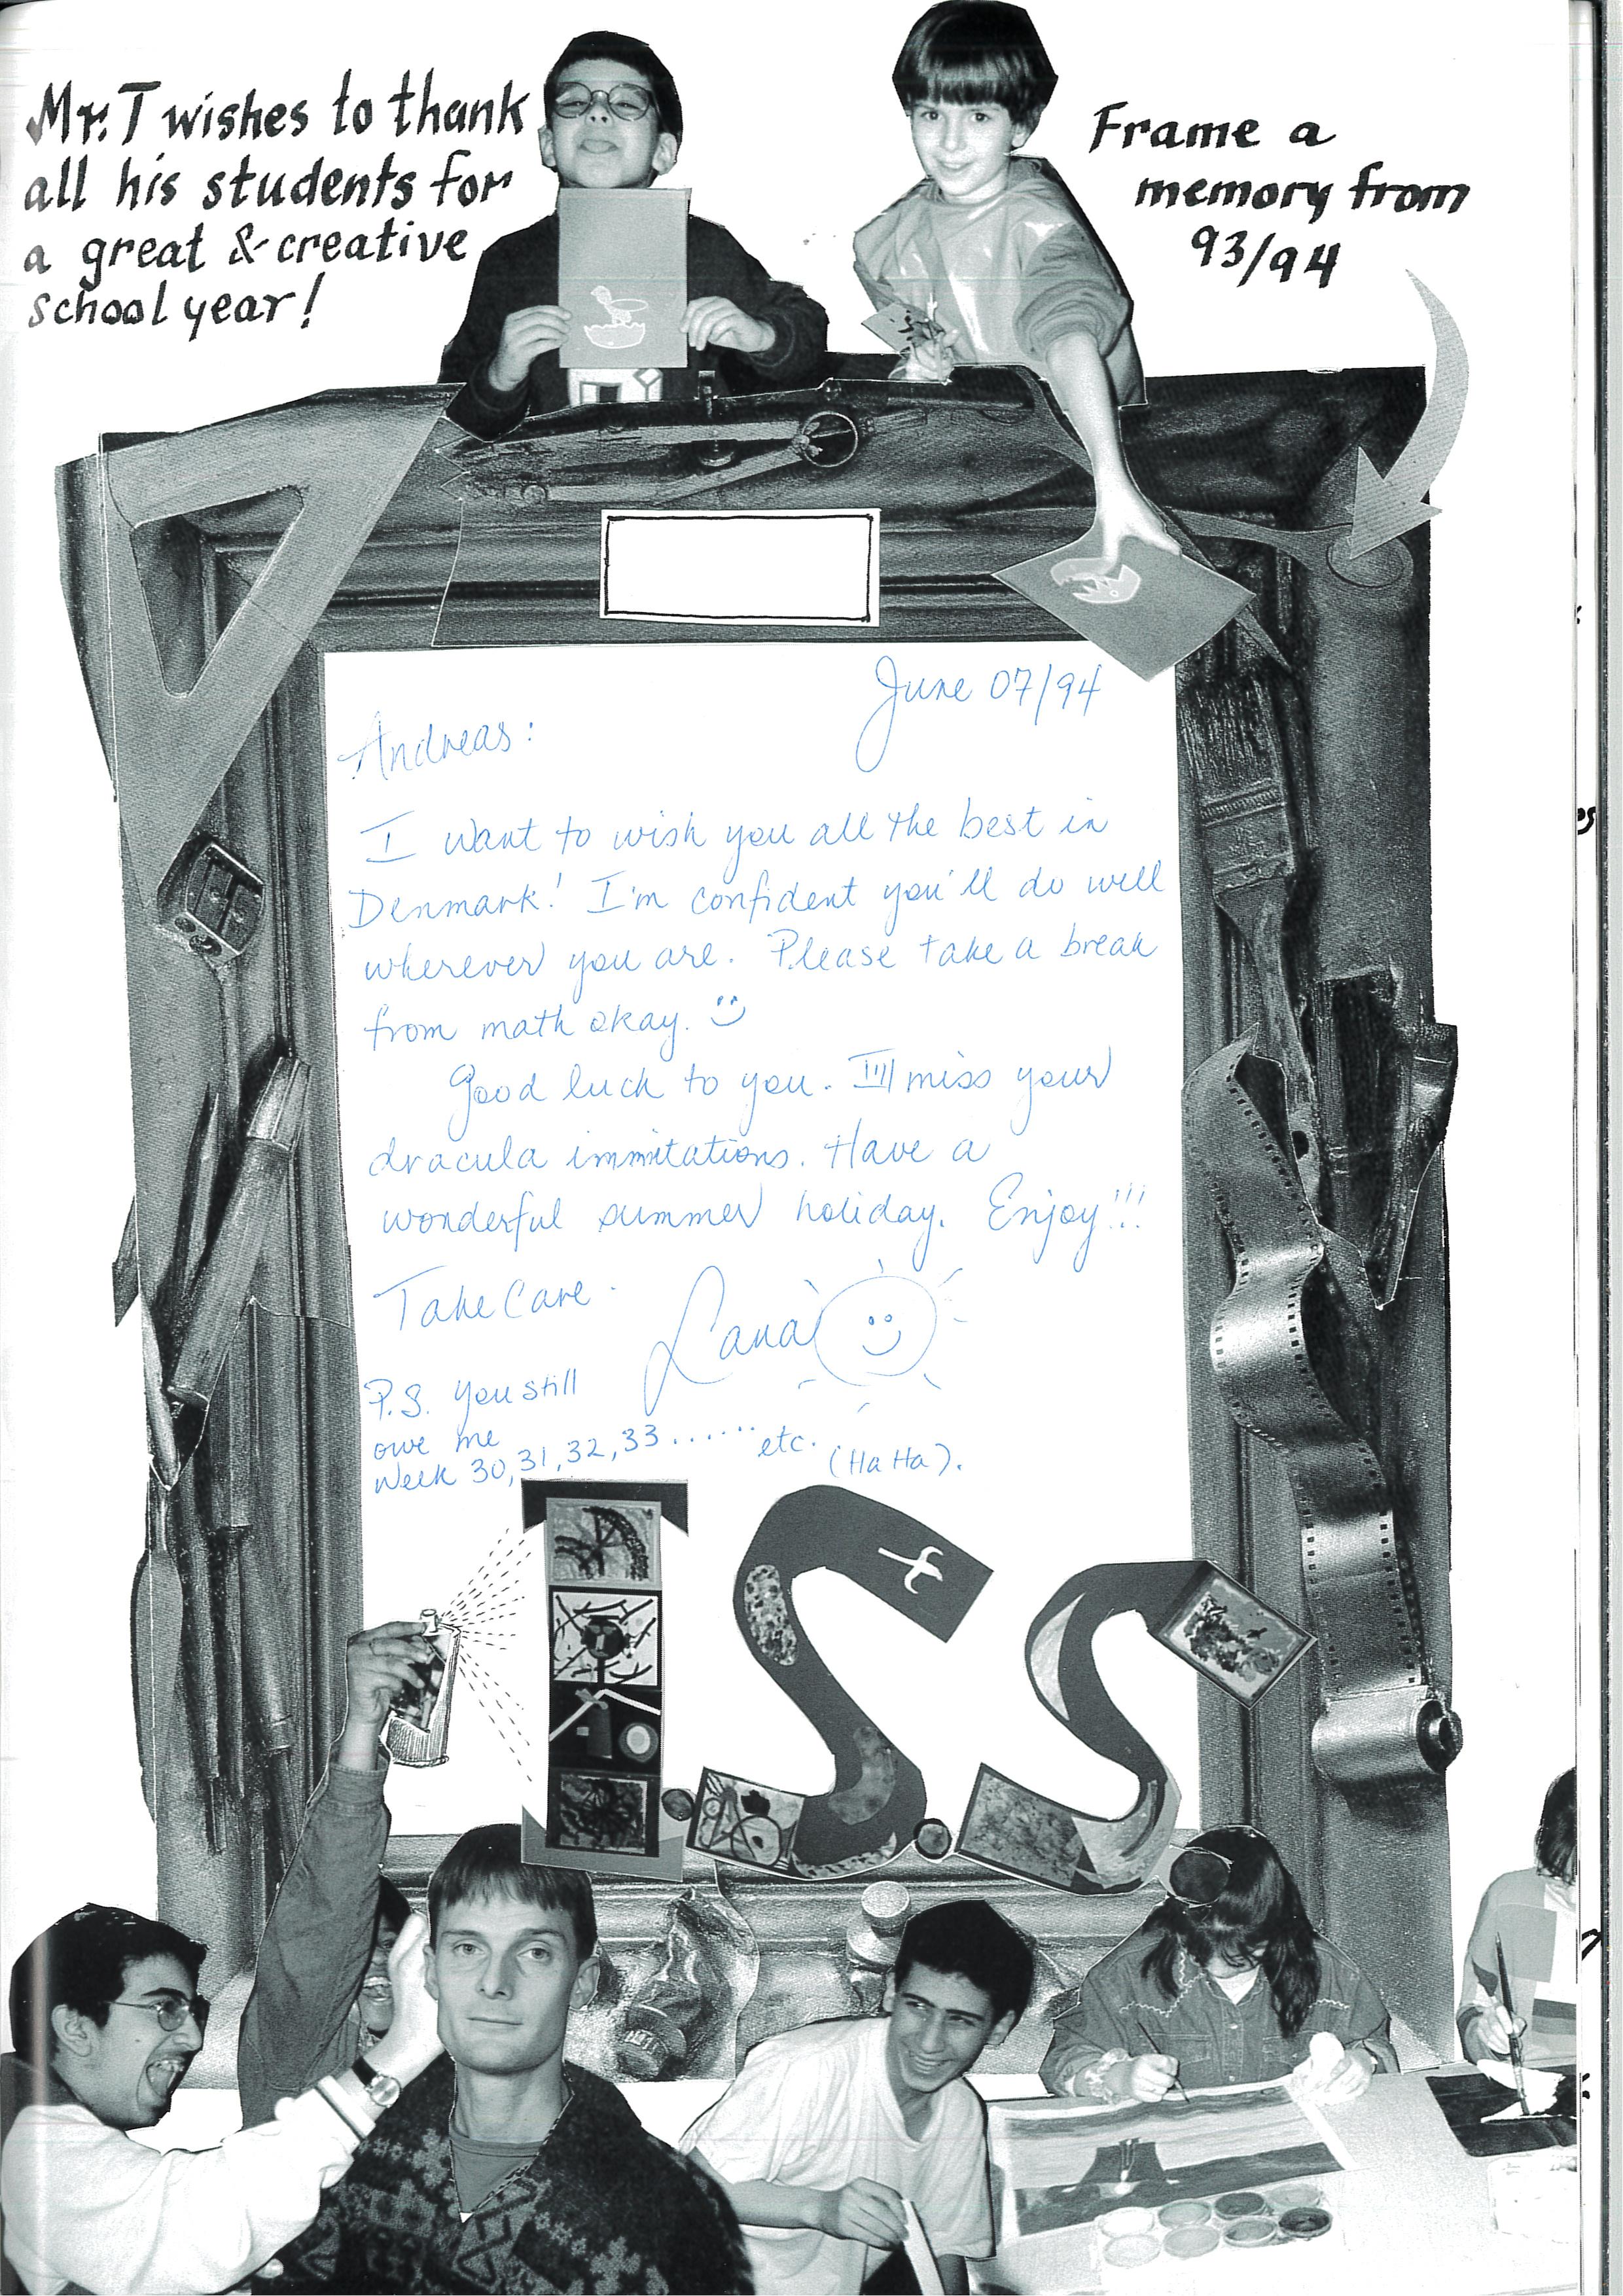 Mr. T wishes to thank
all his students for
a great & creative
school year!
Frame a
memory from
93/94
June 07/94
Andreas:
I want to wish you all the best in
Denmark! I'm confident you'll do well
wherever you are. Please take a break
from math okay.
Good luck to you. I'll miss your
dracula immitations. Have a
wonderful summer holiday. Enjoy!!!
Take Care.
Lana
P.S. You still
owe me
Week 30, 31, 32, 33 ...... etc. (Ha Ha).
I.S.S